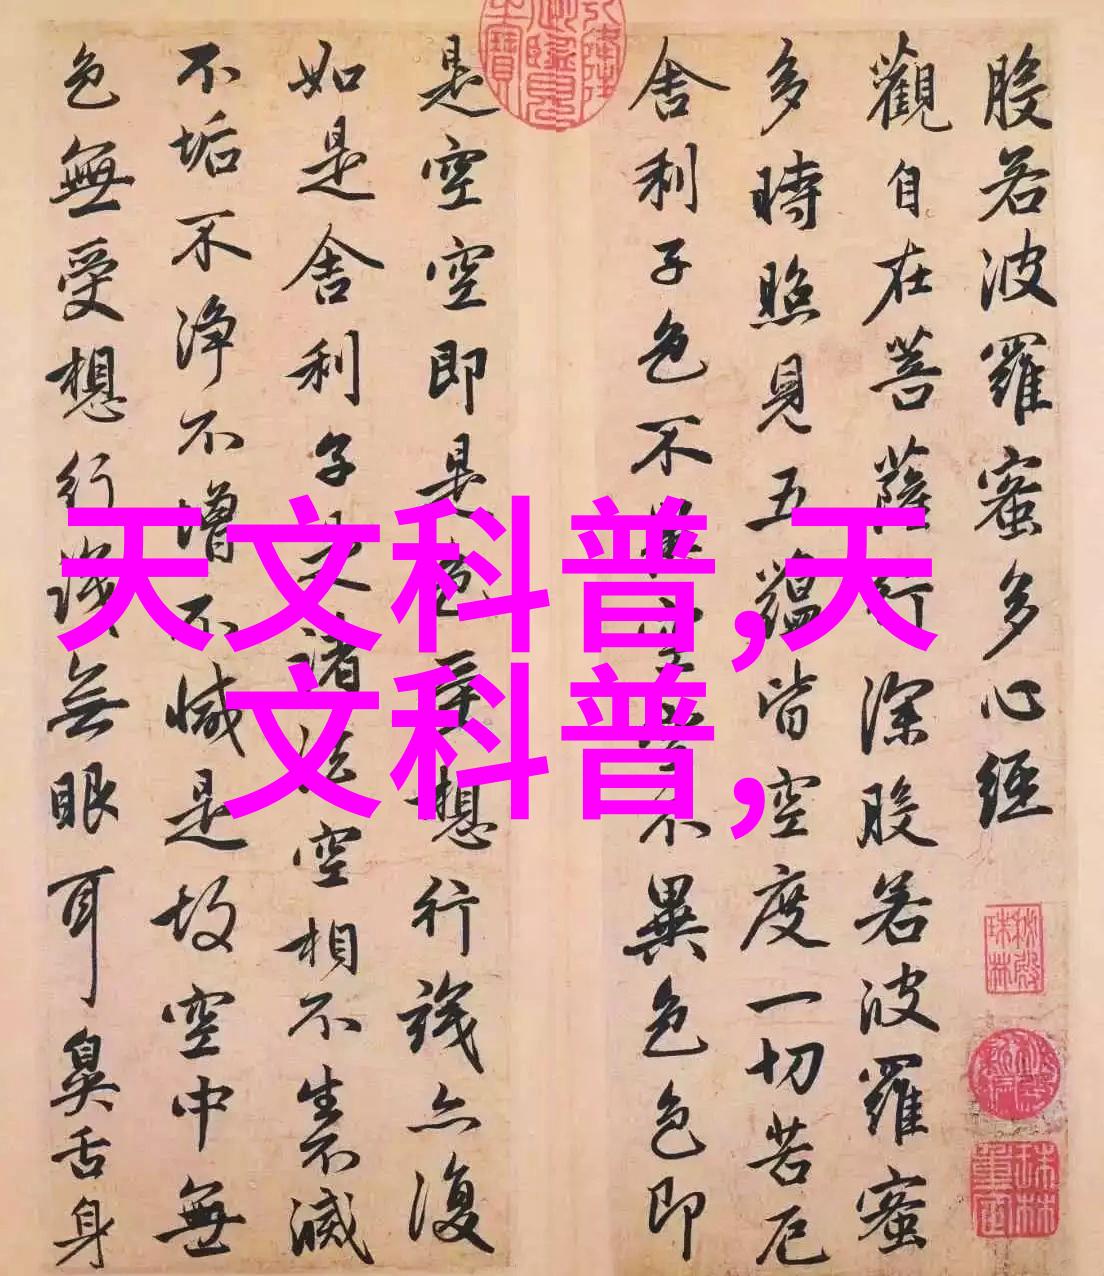 般若波羅蜜多心經
觀自在菩薩行深般若波羅蜜
多時照見五蘊皆空度一切苦厄
舍利子色不異空空不異色色即
是空空即是色受想行識亦復
如是舍利子是諸法空相不生不滅
不垢不淨不增不減是故空中無
色無受想行識無眼耳鼻舌身
天文科普,天
文科普,